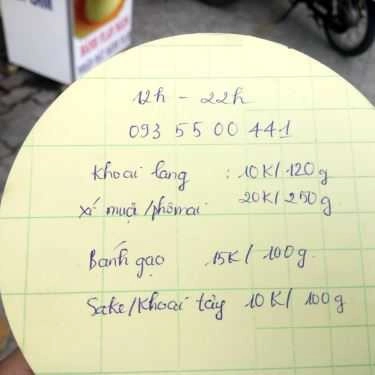 12h - 22h
093 55 00 441
Khoai lang : 10K/120g
xí muội/phômai 20K/250g
Bánh gạo 15K/100g
Sake/Khoai tây 10K/100g